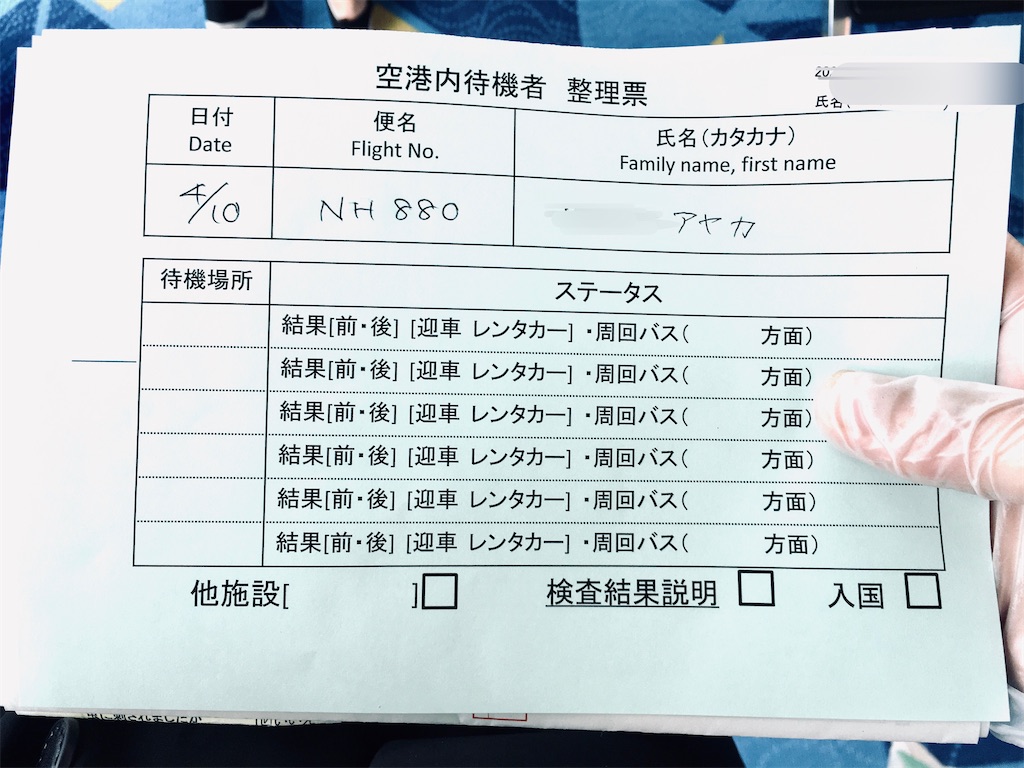 空港内待機者 整理票
氏名(
日付 便名 氏名(カタカナ)
Date Flight No. Family name, first name
4/10 NH 880 アヤカ
待機場所 ステータス
結果[前・後] [迎車 レンタカー] ・周回バス( 方面)
結果[前・後] [迎車 レンタカー] ・周回バス( 方面)
結果[前・後] [迎車 レンタカー] ・周回バス( 方面)
結果[前・後] [迎車 レンタカー] ・周回バス( 方面)
結果[前・後] [迎車 レンタカー] ・周回バス( 方面)
結果[前・後] [迎車 レンタカー] ・周回バス( 方面)
他施設[ ]□ 検査結果説明 □ 入国 □